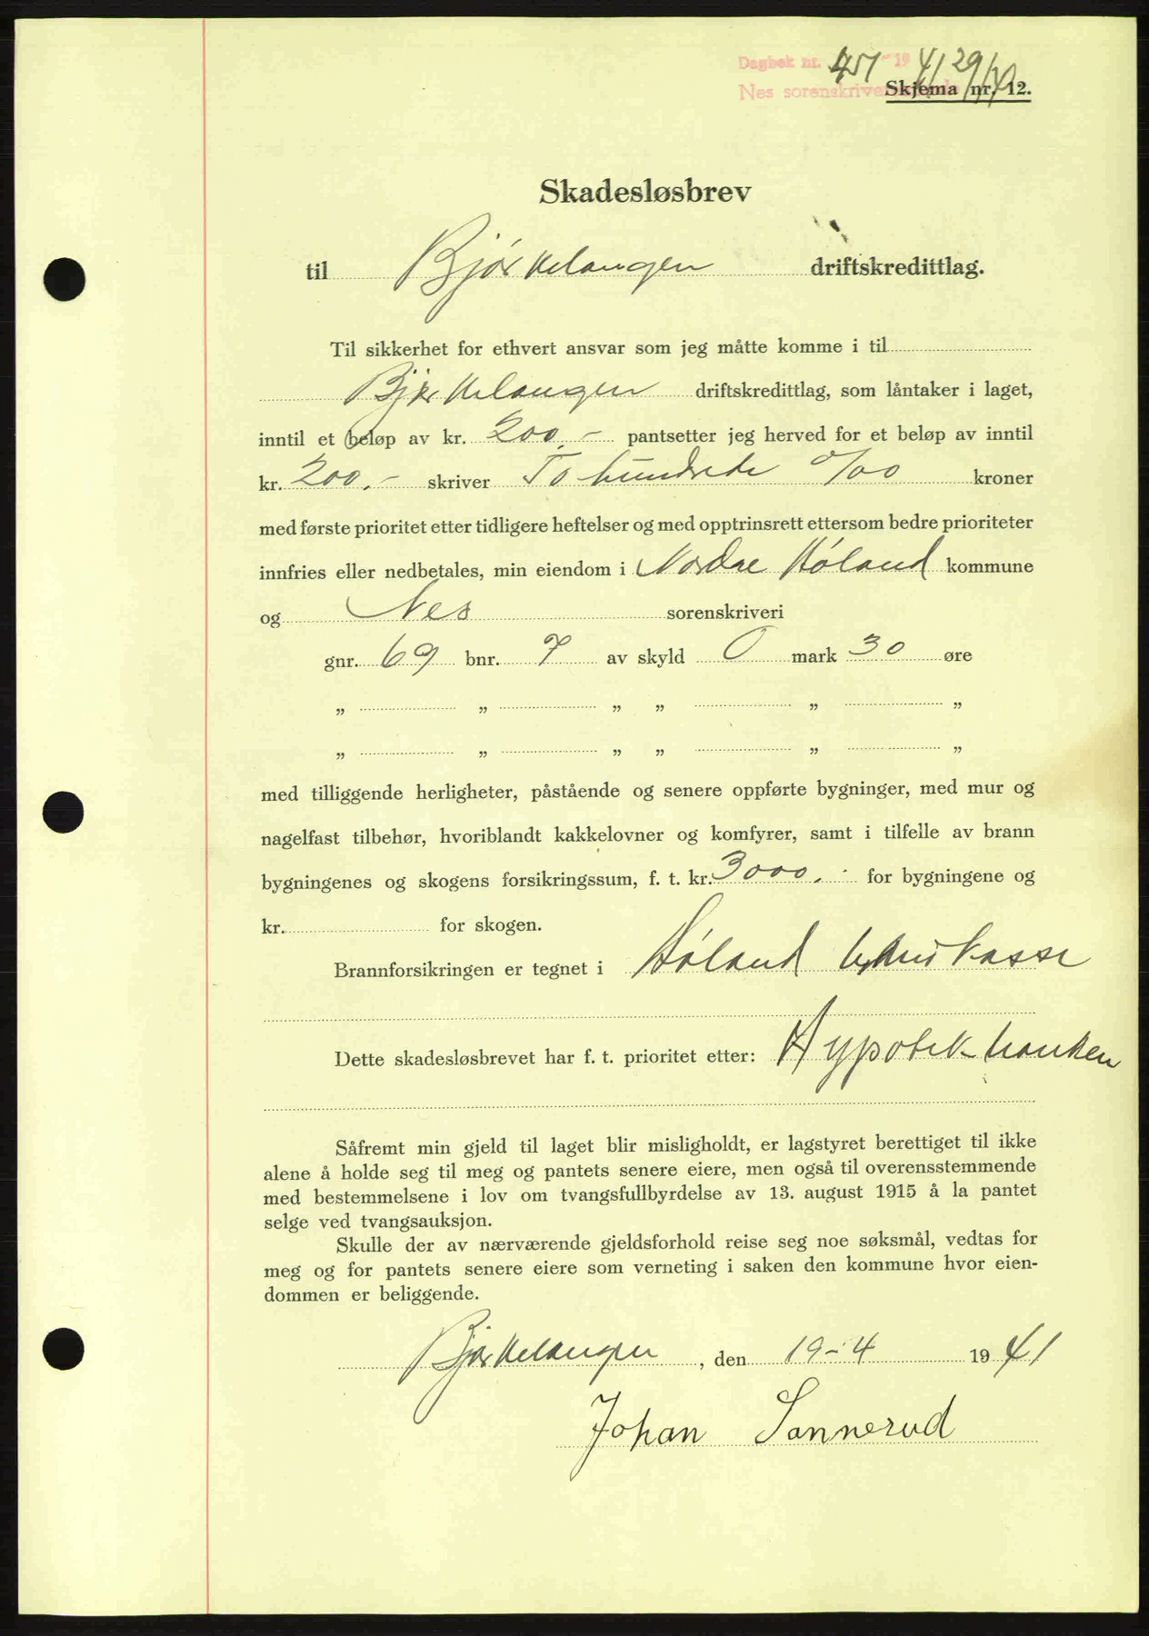 Dagbok nr. 451 - 19 41 29/4
Nes sorenskriver
Skjema nr. 12.
Skadesløsbrev
til Bjørkelangen driftskredittlag.
Til sikkerhet for ethvert ansvar som jeg måtte komme i til
Bjørkelangen driftskredittlag, som låntaker i laget,
inntil et beløp av kr. 200.- pantsetter jeg herved for et beløp av inntil
kr. 200.- skriver To hundrede 0/00 kroner
med første prioritet etter tidligere heftelser og med opptrinsrett ettersom bedre prioriteter
innfries eller nedbetales, min eiendom i Nordre Høland kommune
og Nes sorenskriveri
gnr. 69 bnr. 7 av skyld 0 mark 30 øre
„ „ „ „ „ „
„ „ „ „ „ „
med tilliggende herligheter, påstående og senere oppførte bygninger, med mur og
nagelfast tilbehør, hvoriblandt kakkelovner og komfyrer, samt i tilfelle av brann
bygningenes og skogens forsikringssum, f. t. kr. 3000.- for bygningene og
kr. for skogen.
Brannforsikringen er tegnet i Høland
Dette skadesløsbrevet har f. t. prioritet etter: Hypotekbanken
Såfremt min gjeld til laget blir misligholdt, er lagstyret berettiget til ikke
alene å holde seg til meg og pantets senere eiere, men også til overensstemmende
med bestemmelsene i lov om tvangsfullbyrdelse av 13. august 1915 å la pantet
selge ved tvangsauksjon.
Skulle der av nærværende gjeldsforhold reise seg noe søksmål, vedtas for
meg og for pantets senere eiere som verneting i saken den kommune hvor eien-
dommen er beliggende.
Bjørkelangen, den 19-4 1941
Johan Sannerud